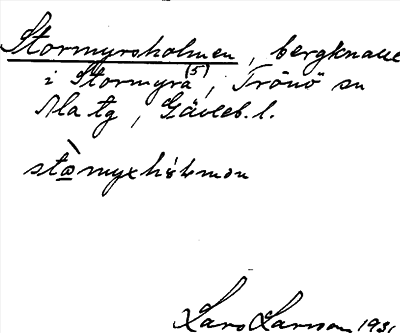 Stormyrsholmen, bergknalle
i Stormyra (5), Trönö sn
Ala tg, Gävleb. l.
Lars Larsson 193